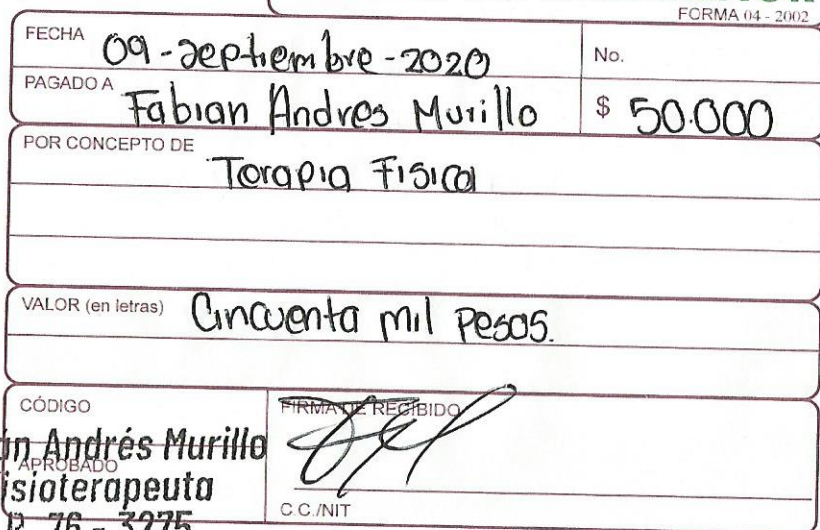 FORMA 04 - 2002
FECHA 09-Septiembre-2020
No.
PAGADO A Fabian Andres Murillo
$ 50.000
POR CONCEPTO DE
Terapia Fisica
VALOR (en letras) Cincuenta mil pesos.
CÓDIGO
FIRMA DE RECIBIDO
Andrés Murillo
APROBADO
isioterapeuta
76 - 3275
C.C./NIT